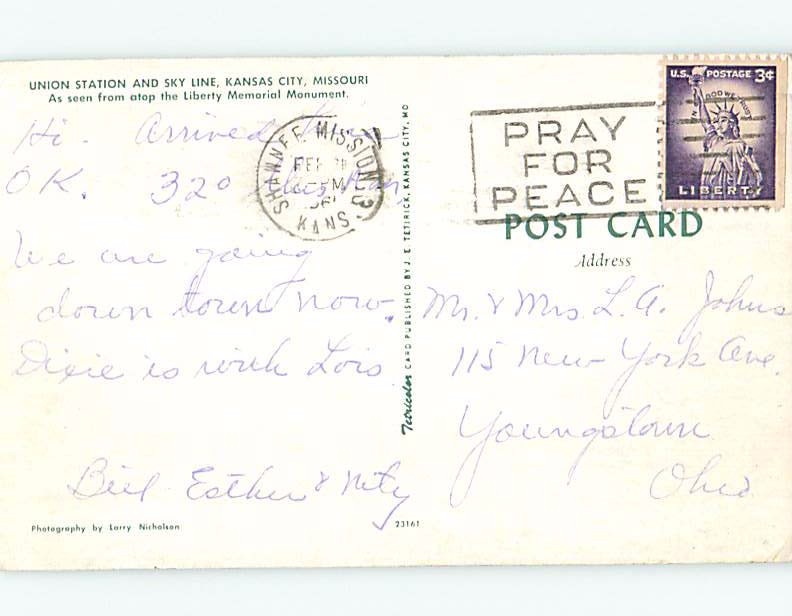 UNION STATION AND SKY LINE, KANSAS CITY, MISSOURI
As seen from atop the Liberty Memorial Monument.
Hi. Arrived here
OK. 32°
We are going
down town now.
Dixie is with Lois
Bill Esther &
Photography by Larry Nicholson
23161
Tetricolor CARD PUBLISHED BY J. E. TETIRICK, KANSAS CITY, MO
SHAWNEE MISSION
FEB
PM
KANS
PRAY
FOR
PEACE
U.S. POSTAGE 3¢
IN GOD WE TRUST
LIBERTY
POST CARD
Address
Mr. & Mrs. L. A. Johns
115 New York Ave.
Youngstown
Ohio